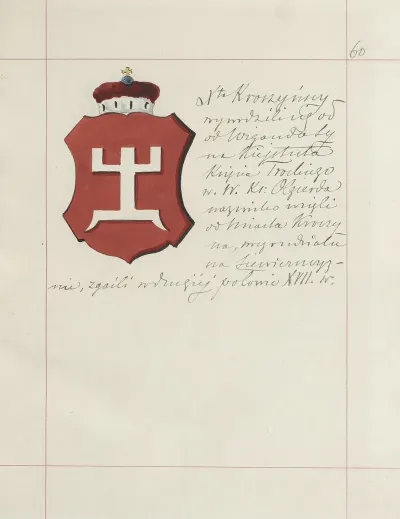 60
Xta Kroszyńscy
wywodzili się od
od Wiganda Sy
na Kiejstuta
Księcia Trockiego
w. W. Ks. Olgierda
nazwisko wzięli
od Miasta Kroszy
na,
na Siewierszczyz-
nie, zgaśli w drugiej połowie XVII. w.